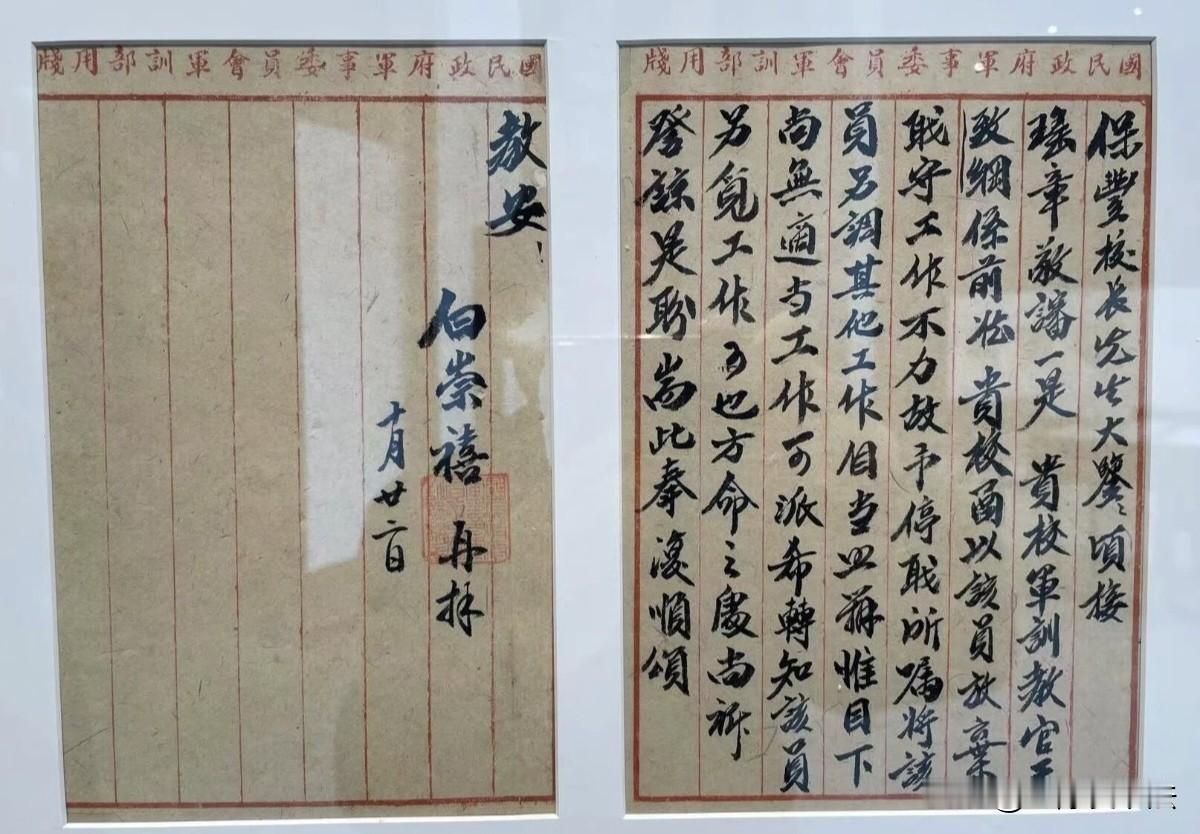 國民政府軍事委員會軍訓部用牋
保豐校長先生大鑒：頃接
瑤章敬審一是　貴校軍訓教官王
致綱係前准　貴校函以該員放棄
職守工作不力故予停職所囑將該
員另調其他工作自當照辦惟目下
尚無適当工作可派希轉知該員
另覓工作可也方命之處尚祈
詧諒是盼耑此奉復順頌
國民政府軍事委員會軍訓部用牋
教安！
白崇禧再拜
十月廿二日